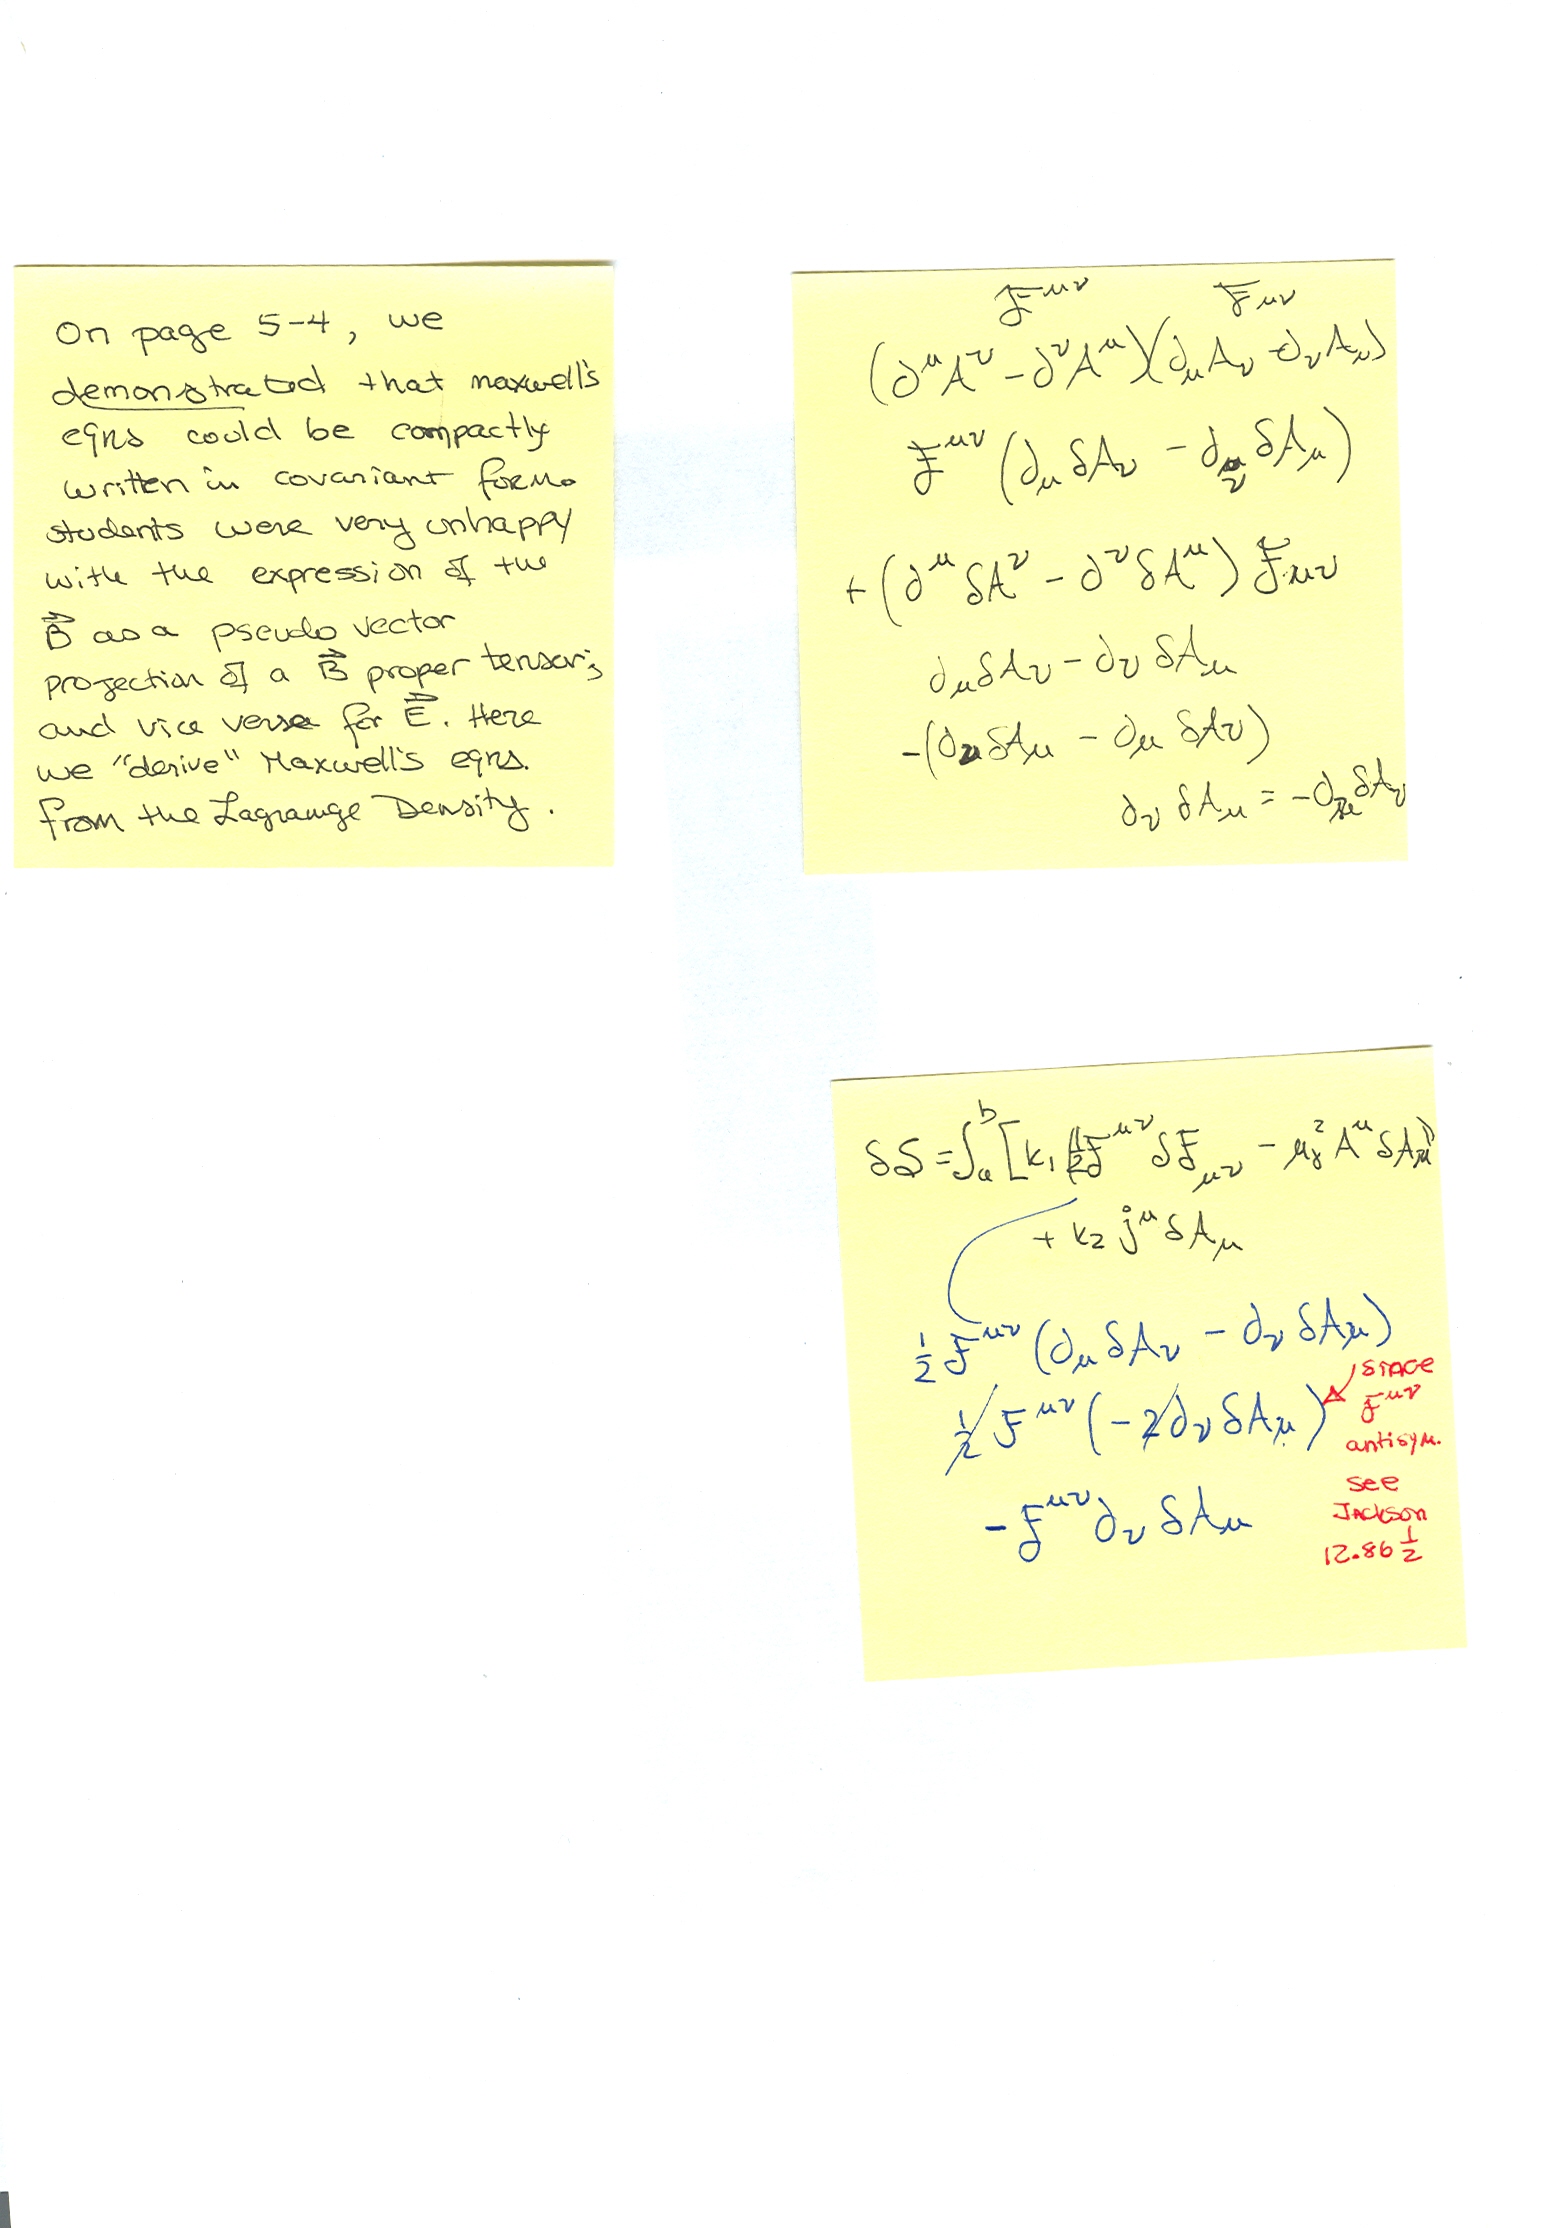 On page 5-4, we
demonstrated that maxwell's
eqns could be compactly
written in covariant form.
students were very unhappy
with the expression of the
B⃗ as a pseudo vector
projection of a B⃗ proper tensor;
and vice versa for E⃗. Here
we "derive" Maxwell's eqns.
from the Lagrange Density.
F^μν F_μν
(∂^μ A^ν - ∂^ν A^μ)(∂_μ A_ν - ∂_ν A_μ)
F^μν (∂_μ δA_ν - ∂_ν δA_μ)
+ (∂^μ δA^ν - ∂^ν δA^μ) F_μν
∂_μ δA_ν - ∂_ν δA_μ
-(∂_ν δA_μ - ∂_μ δA_ν)
∂_ν δA_μ = -∂_μ δA_ν
δS = ∫_a^b [k_1 (1/2 F^μν δF_μν - μ_γ^2 A^μ δA_μ)
+ k_2 j^μ δA_μ
1/2 F^μν (∂_μ δA_ν - ∂_ν δA_μ)
1/2 F^μν (-2 ∂_ν δA_μ)
since
F^μν
antisym.
see
JACKSON
12.86 1/2
- F^μν ∂_ν δA_μ